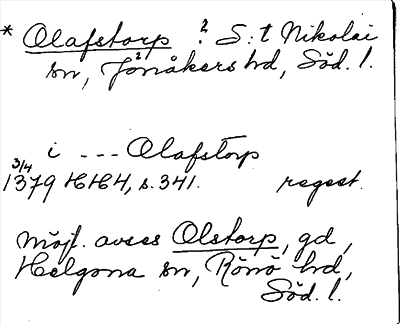 * Olafstorp ? S:t Nikolai
sn, Jönåkers hd, Söd. l.
i --- Olafstorp
3/4
1379 HH4, s. 341. regest.
möjl. avses Olstorp, gd,
Helgona sn, Rönö hd,
Söd. l.